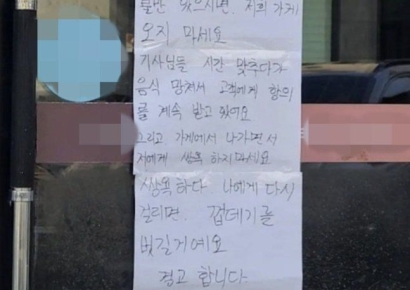 불만 있으시면. 저희 가게
오지 마세요
기사님들 시간 맞추다가
음식 망쳐서 고객에게 항의
를 계속 받고 있어요
그리고 가게에서 나가면서
저에게 쌍욕 하지마세요
쌍욕하다 나에게 다시
걸리면. 껍데기를
벗길게예요
경고 합니다.